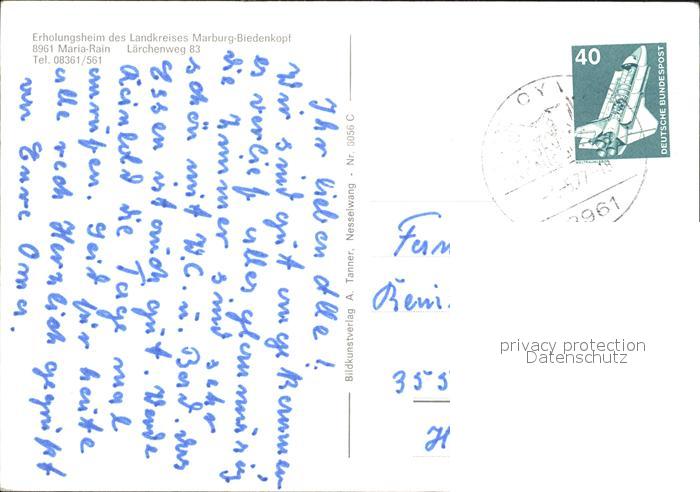 Erholungsheim des Landkreises Marburg-Biedenkopf
8961 Maria-Rain Lärchenweg 83
Tel. 08361/561
Ihr lieben alle!
Wir sind gut angekommen
es verlief alles planmäßig
die Zimmer sind sehr
schön mit W.C. u. Bad. das
Essen ist auch gut. Heute
die Tage mal
anrufen. Seid für heute
alle recht Herzlich gegrüßt
von Eure Oma.
Bildkunstverlag A. Tanner, Nesselwang - Nr. 8056 C
40
DEUTSCHE BUNDESPOST
77
8961
Fam
355
H
privacy protection
Datenschutz